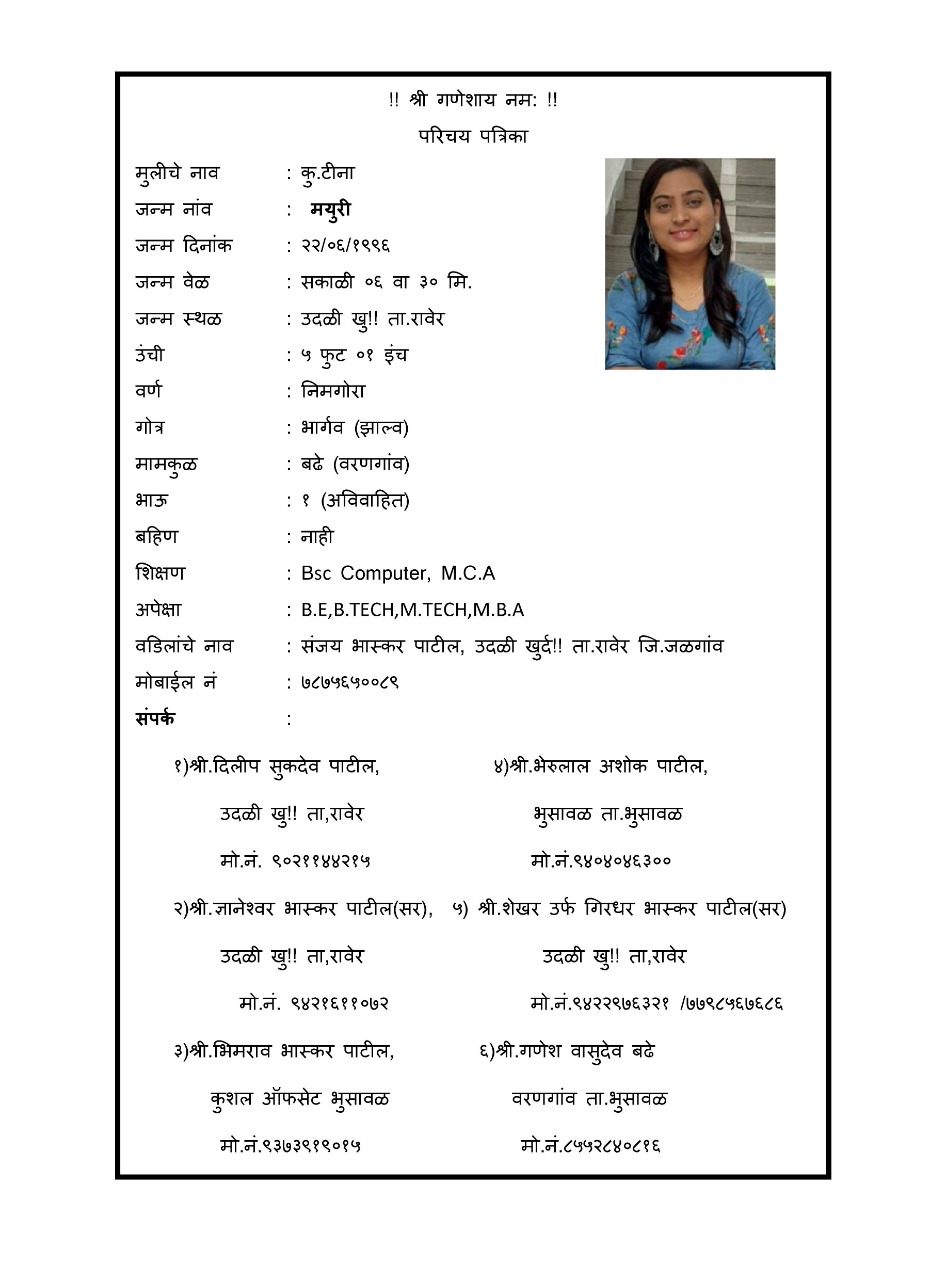 !! श्री गणेशाय नम: !!
परिचय पत्रिका
मुलीचे नाव : कु.टीना
जन्म नांव : मयुरी
जन्म दिनांक : २२/०६/१९९६
जन्म वेळ : सकाळी ०६ वा ३० मि.
जन्म स्थळ : उदळी खु!! ता.रावेर
उंची : ५ फुट ०१ इंच
वर्ण : निमगोरा
गोत्र : भार्गव (झाल्व)
मामकुळ : बढे (वरणगांव)
भाऊ : १ (अविवाहित)
बहिण : नाही
शिक्षण : Bsc Computer, M.C.A
अपेक्षा : B.E,B.TECH,M.TECH,M.B.A
वडिलांचे नाव : संजय भास्कर पाटील, उदळी खुर्द!! ता.रावेर जि.जळगांव
मोबाईल नं : ७८७५६५००८९
संपर्क :
१)श्री.दिलीप सुकदेव पाटील, ४)श्री.भेरुलाल अशोक पाटील,
उदळी खु!! ता,रावेर भुसावळ ता.भुसावळ
मो.नं. ९०२११४४२१५ मो.नं.९४०४०४६३००
२)श्री.ज्ञानेश्वर भास्कर पाटील(सर), ५) श्री.शेखर उर्फ गिरधर भास्कर पाटील(सर)
उदळी खु!! ता,रावेर उदळी खु!! ता,रावेर
मो.नं. ९४२१६११०७२ मो.नं.९४२२९७६३२१ /७७९८५६७६८६
३)श्री.भिमराव भास्कर पाटील, ६)श्री.गणेश वासुदेव बढे
कुशल ऑफसेट भुसावळ वरणगांव ता.भुसावळ
मो.नं.९३७३९१९०१५ मो.नं.८५५२८४०८१६